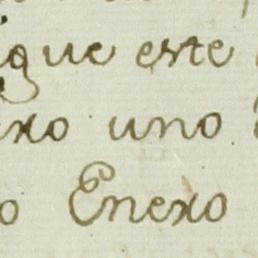 que este
xo uno
o Enexo